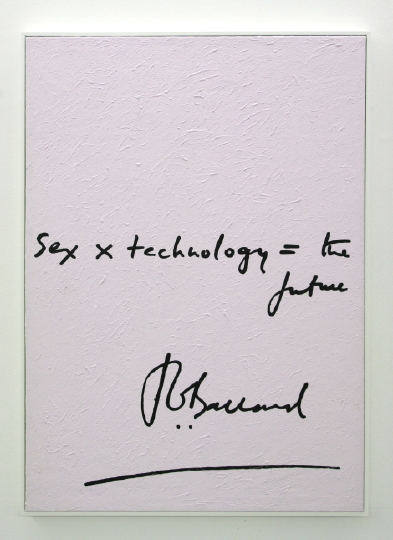 Sex x technology = the
future
JGBallard